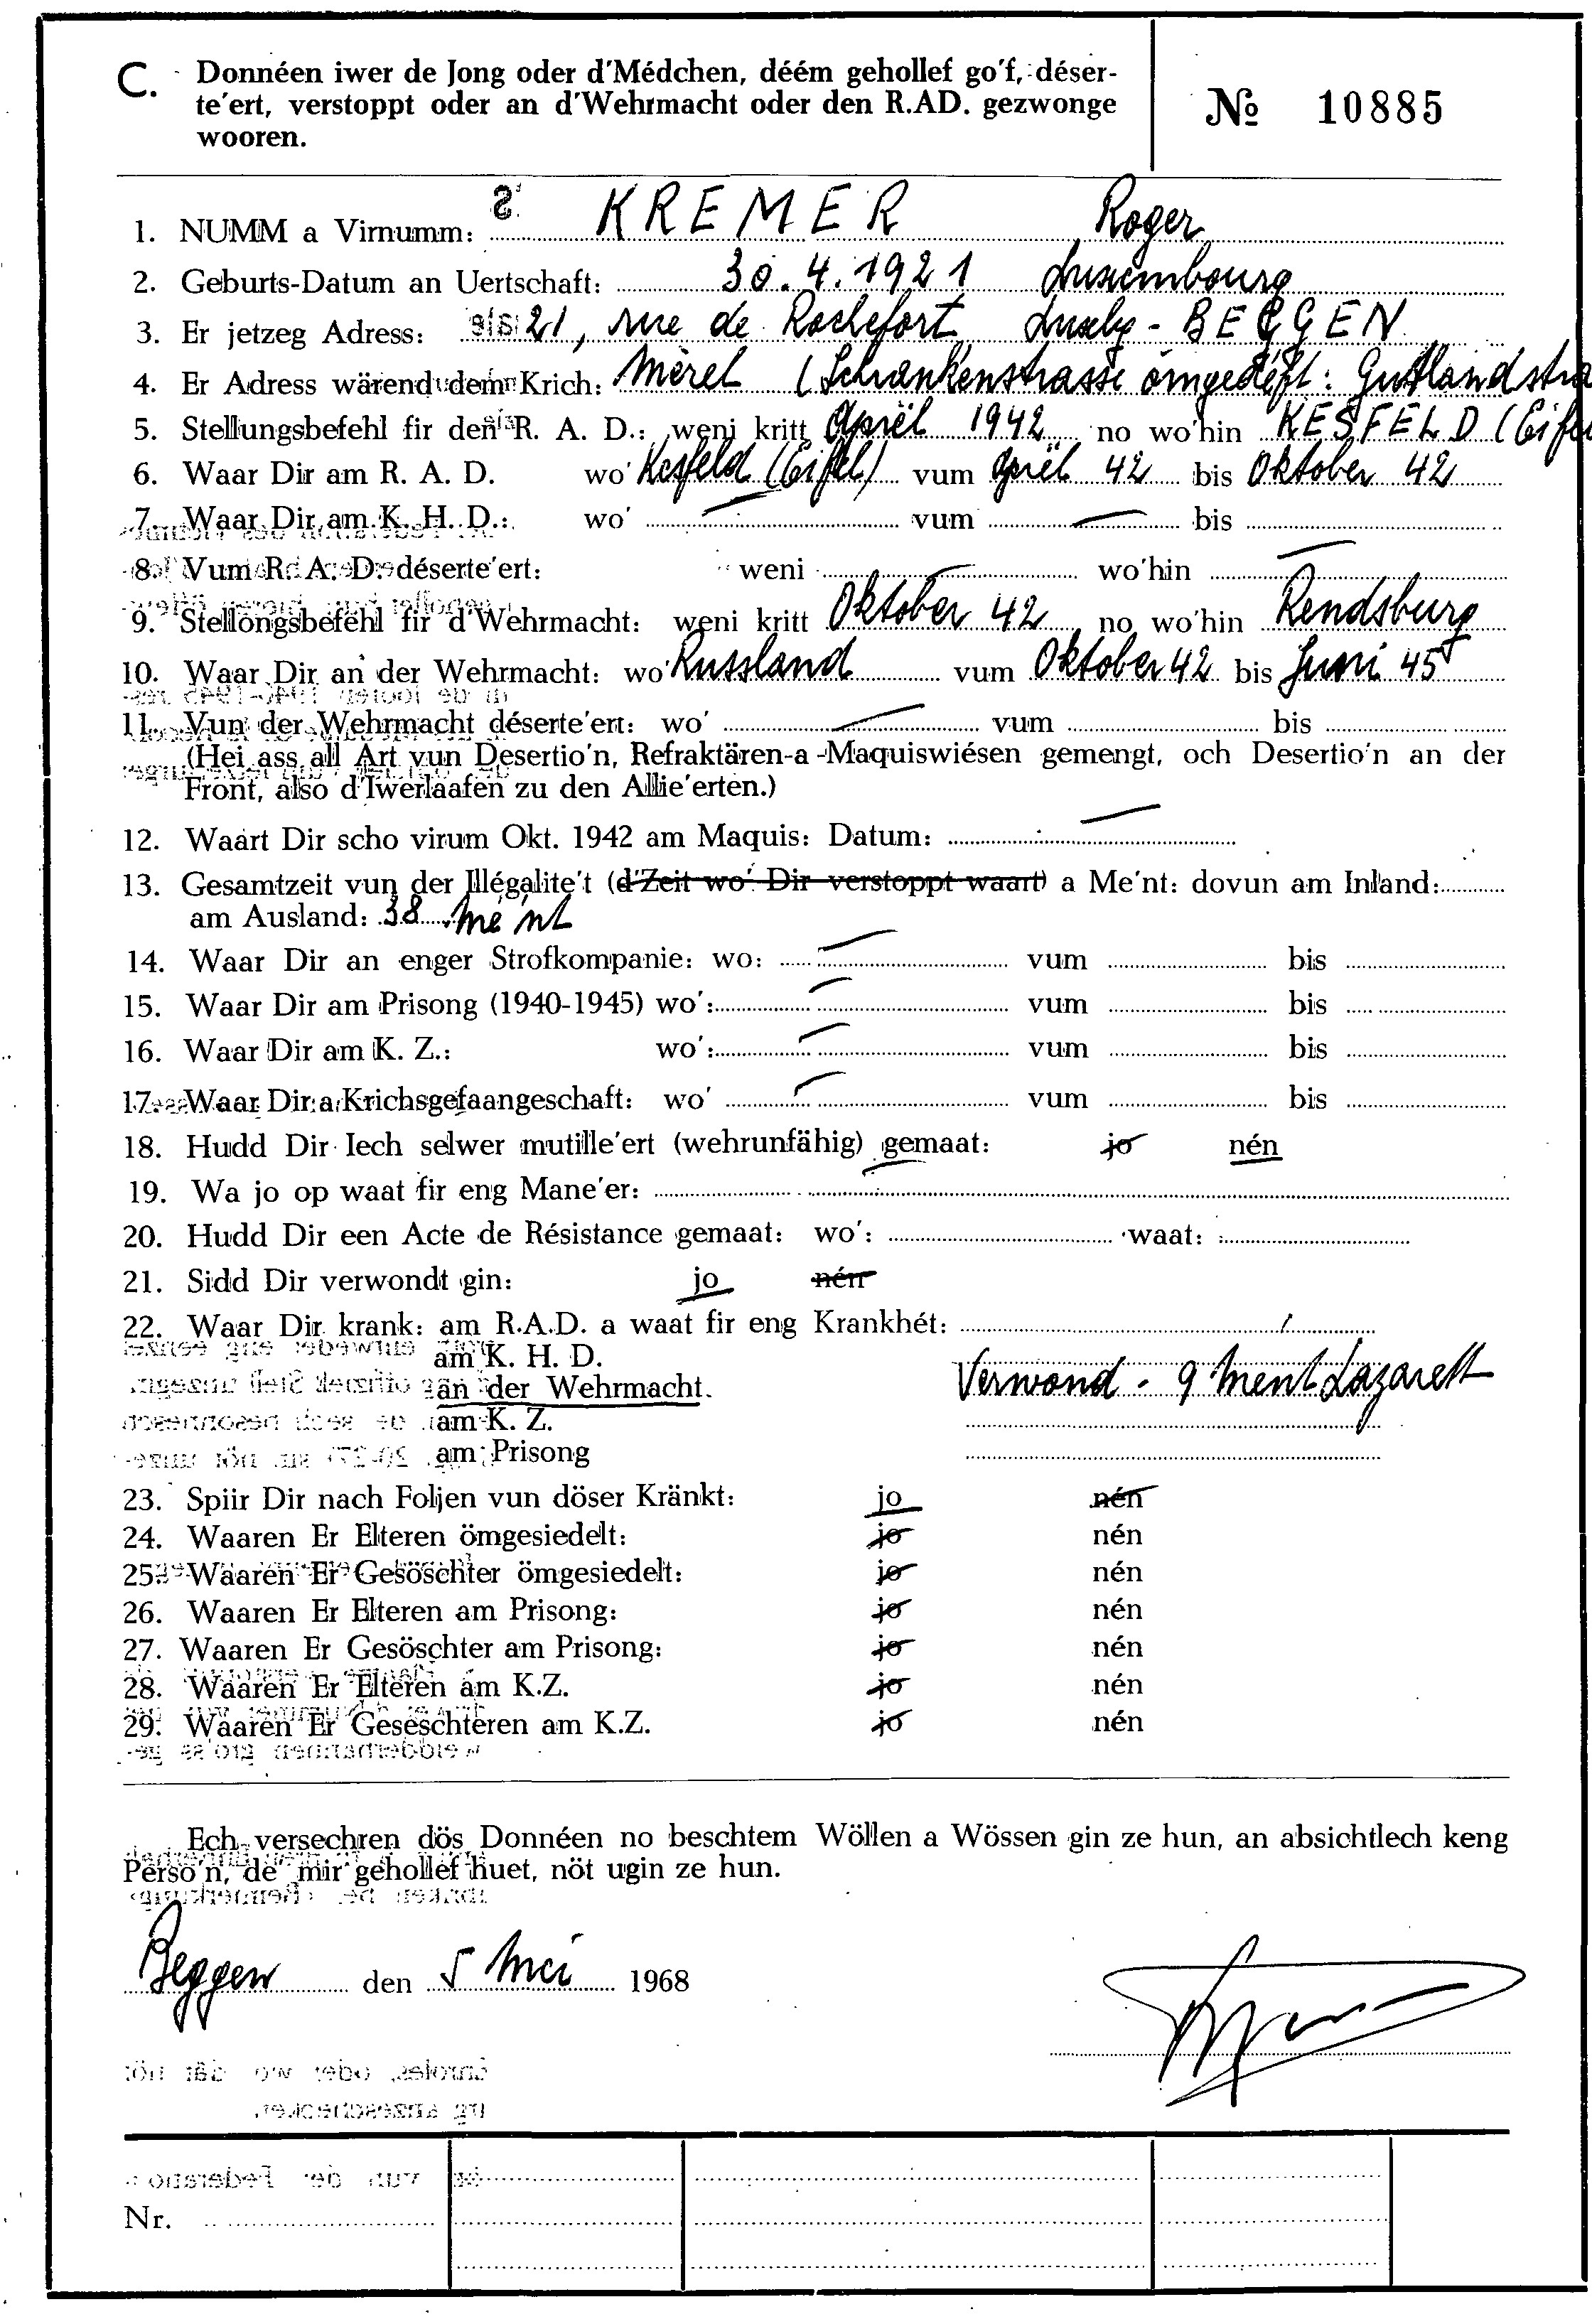 C. Donnéen iwer de Jong oder d'Médchen, déém gehollef go'f, déser-
te'ert, verstoppt oder an d'Wehrmacht oder den R.AD. gezwonge
wooren.
№ 10885
1. NUMM a Virnumm: KREMER Roger
2. Geburts-Datum an Uertschaft: 30.4.1921 Luxembourg
3. Er jetzeg Adress: 21, rue de Rochefort Luxbg - BEGGEN
4. Er Adress wärend dem Krich: Mèrel (Schrankenstrasse ömgedêft: Gutlandstra
5. Stellungsbefehl fir den R. A. D.: weni kritt Aprël 1942 no wo'hin KESFELD (Eife
6. Waar Dir am R. A. D. wo' Kesfeld (Eifel) vum Aprël 42 bis Oktober 42
7. Waar Dir am K. H. D.: wo' — vum — bis
8. Vum R. A. D. déserte'ert: weni — wo'hin —
9. Stellongsbefehl fir d'Wehrmacht: weni kritt Oktober 42 no wo'hin Rendsburg
10. Waar Dir an der Wehrmacht: wo' Russland vum Oktober 42 bis Juni 45
11. Vun der Wehrmacht déserte'ert: wo' — vum bis
(Hei ass all Art vun Desertio'n, Refraktären-a-Maquiswiésen gemengt, och Desertio'n an der
Front, also d'Iwerlaafen zu den Allie'erten.)
12. Waart Dir scho virum Okt. 1942 am Maquis: Datum: —
13. Gesamtzeit vun der Illégalite't (d'Zeit wo' Dir verstoppt waart) a Me'nt: dovun am Inland:
am Ausland: 38 Mé'nt
14. Waar Dir an enger Strofkompanie: wo: — vum bis
15. Waar Dir am Prisong (1940-1945) wo': — vum bis
16. Waar Dir am K. Z.: wo': — vum bis
17. Waar Dir a Krichsgefaangeschaft: wo' — vum bis
18. Hudd Dir Iech selwer mutille'ert (wehrunfähig) gemaat: jo nén
19. Wa jo op waat fir eng Mane'er: —
20. Hudd Dir een Acte de Résistance gemaat: wo': waat:
21. Sidd Dir verwondt gin: jo nén
22. Waar Dir krank: am R.A.D. a waat fir eng Krankhét: /
am K. H. D.
an der Wehrmacht. Verwond - 9 Ment Lazarett
am K. Z.
am Prisong
23. Spiir Dir nach Foljen vun döser Kränkt: jo nén
24. Waaren Er Elteren ömgesiedelt: jo nén
25. Waaren Er Gesöschter ömgesiedelt: jo nén
26. Waaren Er Elteren am Prisong: jo nén
27. Waaren Er Gesöschter am Prisong: jo nén
28. Waaren Er Elteren am K.Z. jo nén
29. Waaren Er Geseschteren am K.Z. jo nén
Ech versechren dös Donnéen no beschtem Wöllen a Wössen gin ze hun, an absichtlech keng
Perso'n, de' mir gehollef huet, nöt ugin ze hun.
Beggen den 5 Mei 1968
Nr.